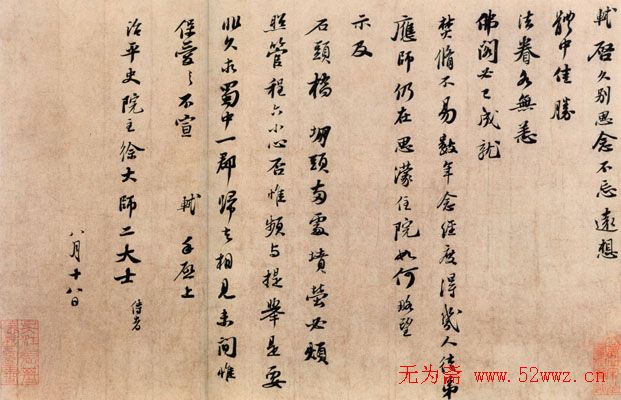 軾啓久别思念不忘遠想
體中佳勝
法眷各無恙
佛閣必已成就
焚脩不易數年念經度得幾人徒弟
應師仍在思濛住院如何略望
示及
石頭橋堋頭兩處墳塋必煩
照管程六小心否惟頻与提舉是要
非久求蜀中一郡歸去相見未間惟
保愛之不宣 軾手啓上
治平史院主徐大師二大士 侍者
八月十八日
无为斋 www.52wwz.cn